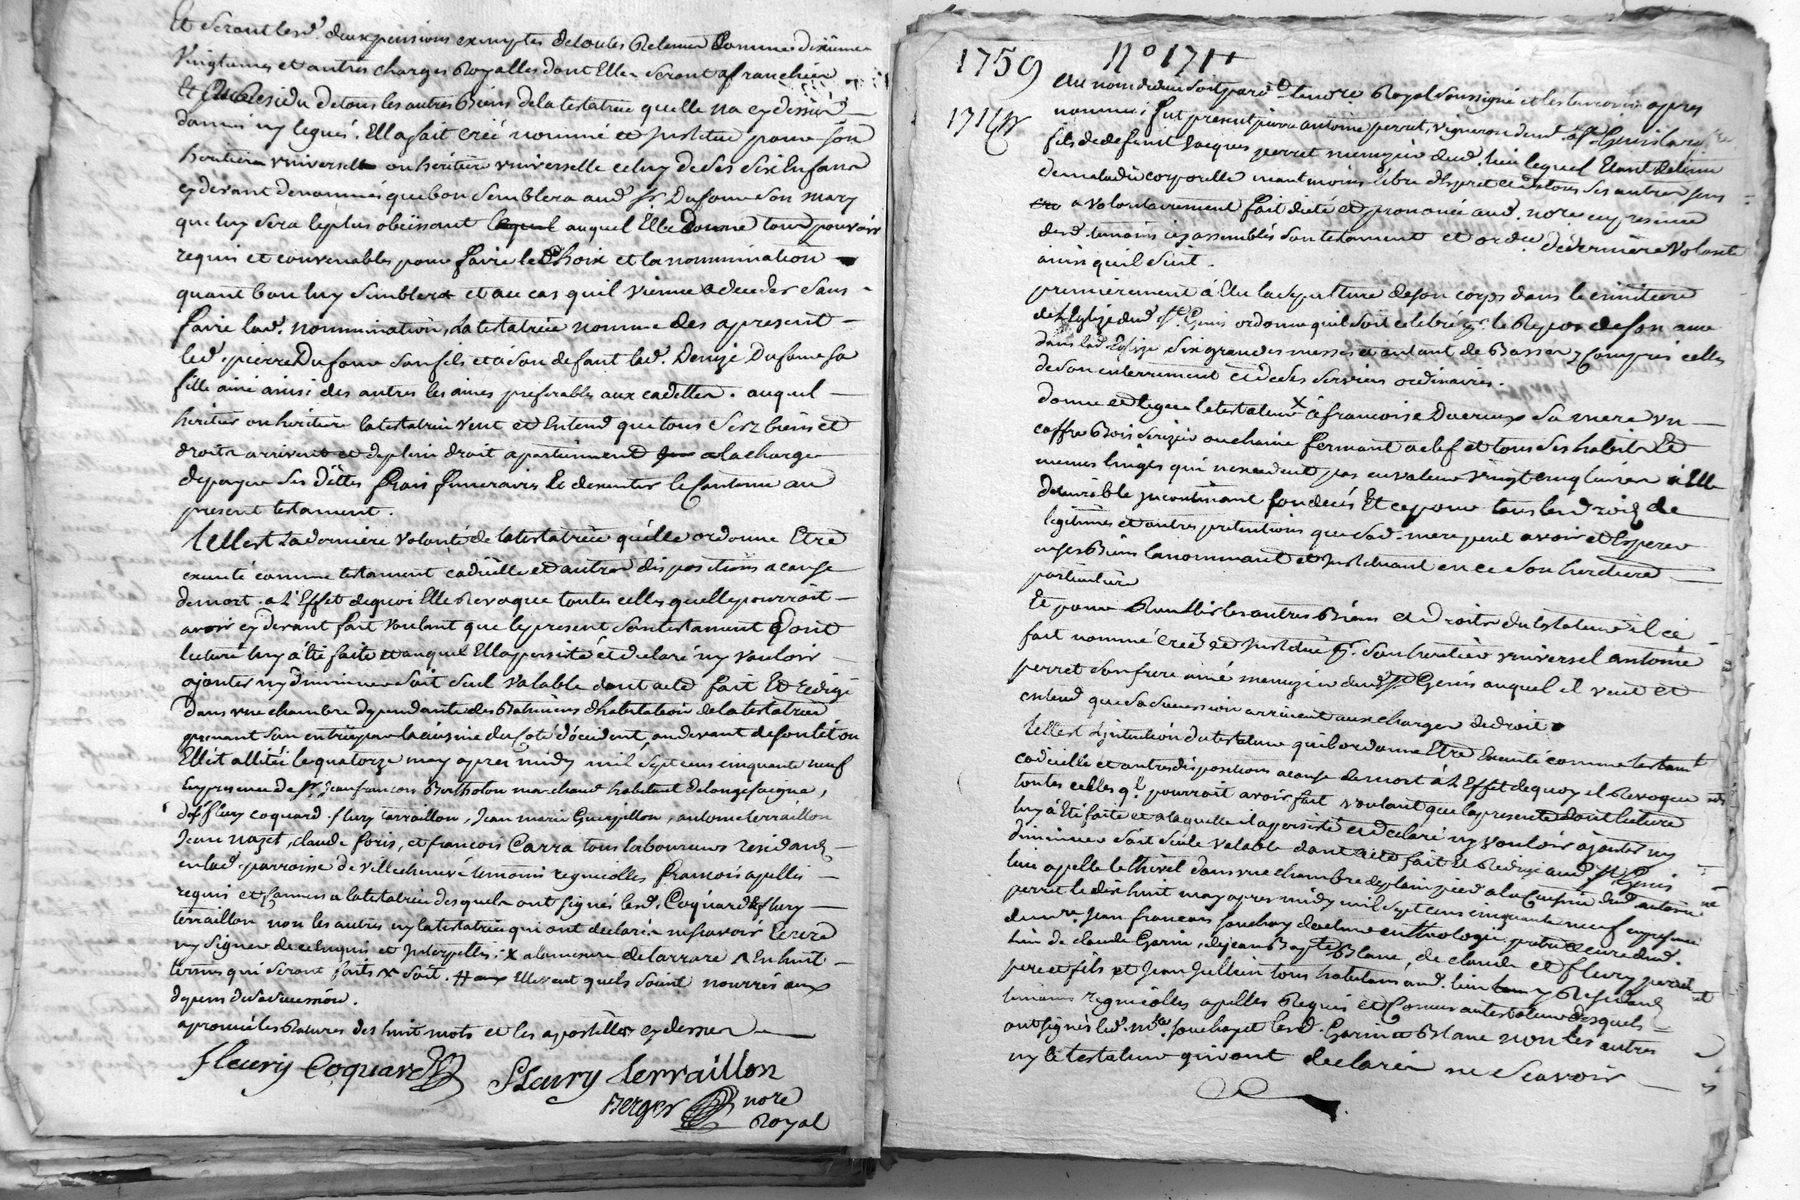 Et seront lesd. deux pensions exemptes de toutes Retenues Comme dixiemes
Vingtiemes et autres charges Royalles dont Elles seront afranchies
Et du Residu de tous les autres Biens de la testatrice quelle na cy dessus
donnés ny legués. Ella fait créé nommé et Institue pour son
heritier universelle ou heritiere universelle celuy de ses six Enfans
cy devant denommés que bon semblera aud. Sr. Dufour son mary
que luy sera le plus obéissant lequel auquel Elle donne tout pouvoir
requis et convenables pour faire le Choix et la nommination
quant bon luy semblera et au cas quil vienne a deceder sans
faire lad. nommination, la testatrice nomme des apresent
led. pierre Dufour son fils et a son defaut lad. Denize Dufour sa
fille ainé ainsi des autres les ainés preferables aux cadettes. auquel
heritier ou heritiere la testatrice veut et Entend que tous sesz biens et
droits arrivent et de plein droit apartiennent a la charge
de payer ses dettes frais funeraires Et dexecuter le Contenu au
present testament.
Telle est La derniere volonté de la testatrice quelle ordonne Etre
executé comme testament codicille et autres dispositions a cause
de mort. a l'Effet dequoi Elle Revoque toutes celles quelle pourroit
avoir cy devant fait voulant que le present son testament dont
lecture luy a été faite et auquel Ella persisté et declaré ny vouloir
ajouter ny diminuer soit seul valable dont acte fait Et redigé
dans une chambre dependante des Batimens d'habitation de la testatrice
prenant son entrée par la cuisine du Coté d'occident, au devant de son lit ou
Elle est allitée le quatorze may apres midy mil sept cens cinquante neuf
En presence de Sr. Jean francois Bertholon marchand habitant de longesaigne,
de fleury coquard, flury terraillon, Jean marie Guerpillon, antoine terraillon
Jean nazet, claude foris, et francois Carra tous laboureurs residans
en lad. parroisse de villecheneve temoins regnicolles francois apellés
requis et connus a la testatrice desquels ont signés lesd. Coquard & flury
terraillon non les autres ny la testatrice qui ont declarés ne scavoir Ecrire
ny signer de ce Enquis et Interpellés: x a la mesure de tarrare En huit
termes qui seront faits x soit. # aux Elle veut quels soient nourris aux
depens de sa succession.
aprouvé les Ratures des huit mots et les apostilles cy dessus
Fleury Coquard Fleury terraillon
Berger nore
Royal
1759 No 171
171
Au nom de dieu soit pardt. le nore Royal soussigné et les temoins apres
nommés fut present pierre antoine perret, vigneron dud. St. Genis Largentiere
fils de defunt Jacques perret menuzier dud. lieu lequel Etant detenu
de maladie corporelle neantmoins libre d'Esprit et de tous ses autres sens
a volontairement fait dicté et prononcé aud. nore en presence
desd. temoins icy assemblés son testament et ordre de derniere volonté
ainsi quil suit.
premierement a Elu la sepulture de son corps dans le cimitiere
de l'Eglize dud. St. Genis ordonne quil soit celebré pr. le Repos de son ame
dans lad. Eglize six grandes messes et autant de Basses y compris celles
de son enterrement et de ses services ordinaires.
donne et legue le testateur x a francoise Ducreux sa mere un
coffre Bois serizier ou chaine fermant a clef et tous ses habits Et
menus linges qui nexcedent pas en valeur vingt cinq livres a Elle
delivrable incontinant son decés Et ce pour tous les droits de
legitimes et autres pretentions que sad. mere peut avoir et Esperer
en ses Biens la nommant et Instituant en ce son heritiere
particuliere
Et pour Recueillir les autres Biens et Droits du testateur il ci
fait nommé créé et Institué pr. son heritier universel antoine
perret son frere ainé menuzier dud. St Genis auquel il veut et
entend que sa succession arrivent aux charges de droit.
Telle est l'intention du testateur quil ordonne Etre Executé comme testamt
codicille et autres dispositions a cause de mort a l'Effet dequoy il Revoque
toutes celles ql. pourroit avoir fait voulant que la presente dont lecture
luy a Eté faite et a laquelle il a persisté et declaré ny vouloir ajouter ny
diminuer soit seule valable dont acte fait Et Redigé aud. St. Genis
lieu apellé le thivel dans une chambre de plain pied a la Cuisine dud. antoine
perret le dix huit may apres midy mil sept cens cinquante neuf en presence
de mre. Jean francois souchay docteur en theologie pretre cure dud.
lieu de claude Garin, de jean Bapte Blanc, de claude et fleury perret
pere et fils et Jean Jullien tous habitans aud. lieu y Residans
temoins regnicolles apellés Requis et Connus au testateur desquels
ont signés led. mre. souchay et lesd. Garin et Blanc non les autres
ny le testateur qui ont declarés ne scavoir